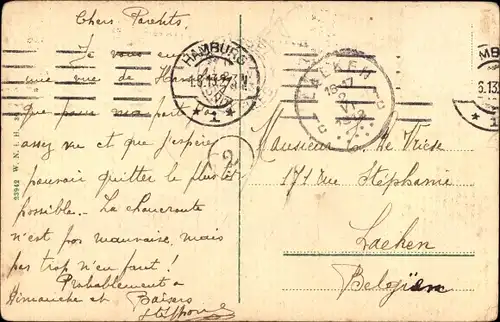 Chers Parents
Je vous env
une vue de Ham
que pour ma part j'
assez vu et que j'espère
pouvoir quitter le plus tôt
possible. La choucroute
n'est pas mauvaise, mais
pas trop n'en faut!
Probablement à
Dimanche et Baisers
Stéphane
HAMBURG
1.6.13
* 1 *
LAEKEN
2
Monsieur De Vriese
171 rue Stéphanie
Laeken
Belgien
23942 W. N. i. H.